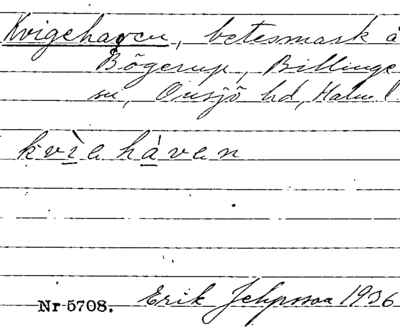 Kvigehaven, betesmark å
Bögerup, Billinge
sn, Onsjö hd, Malm. l.
kvìahàvan
Nr 5708. Erik Jeppsson 1936